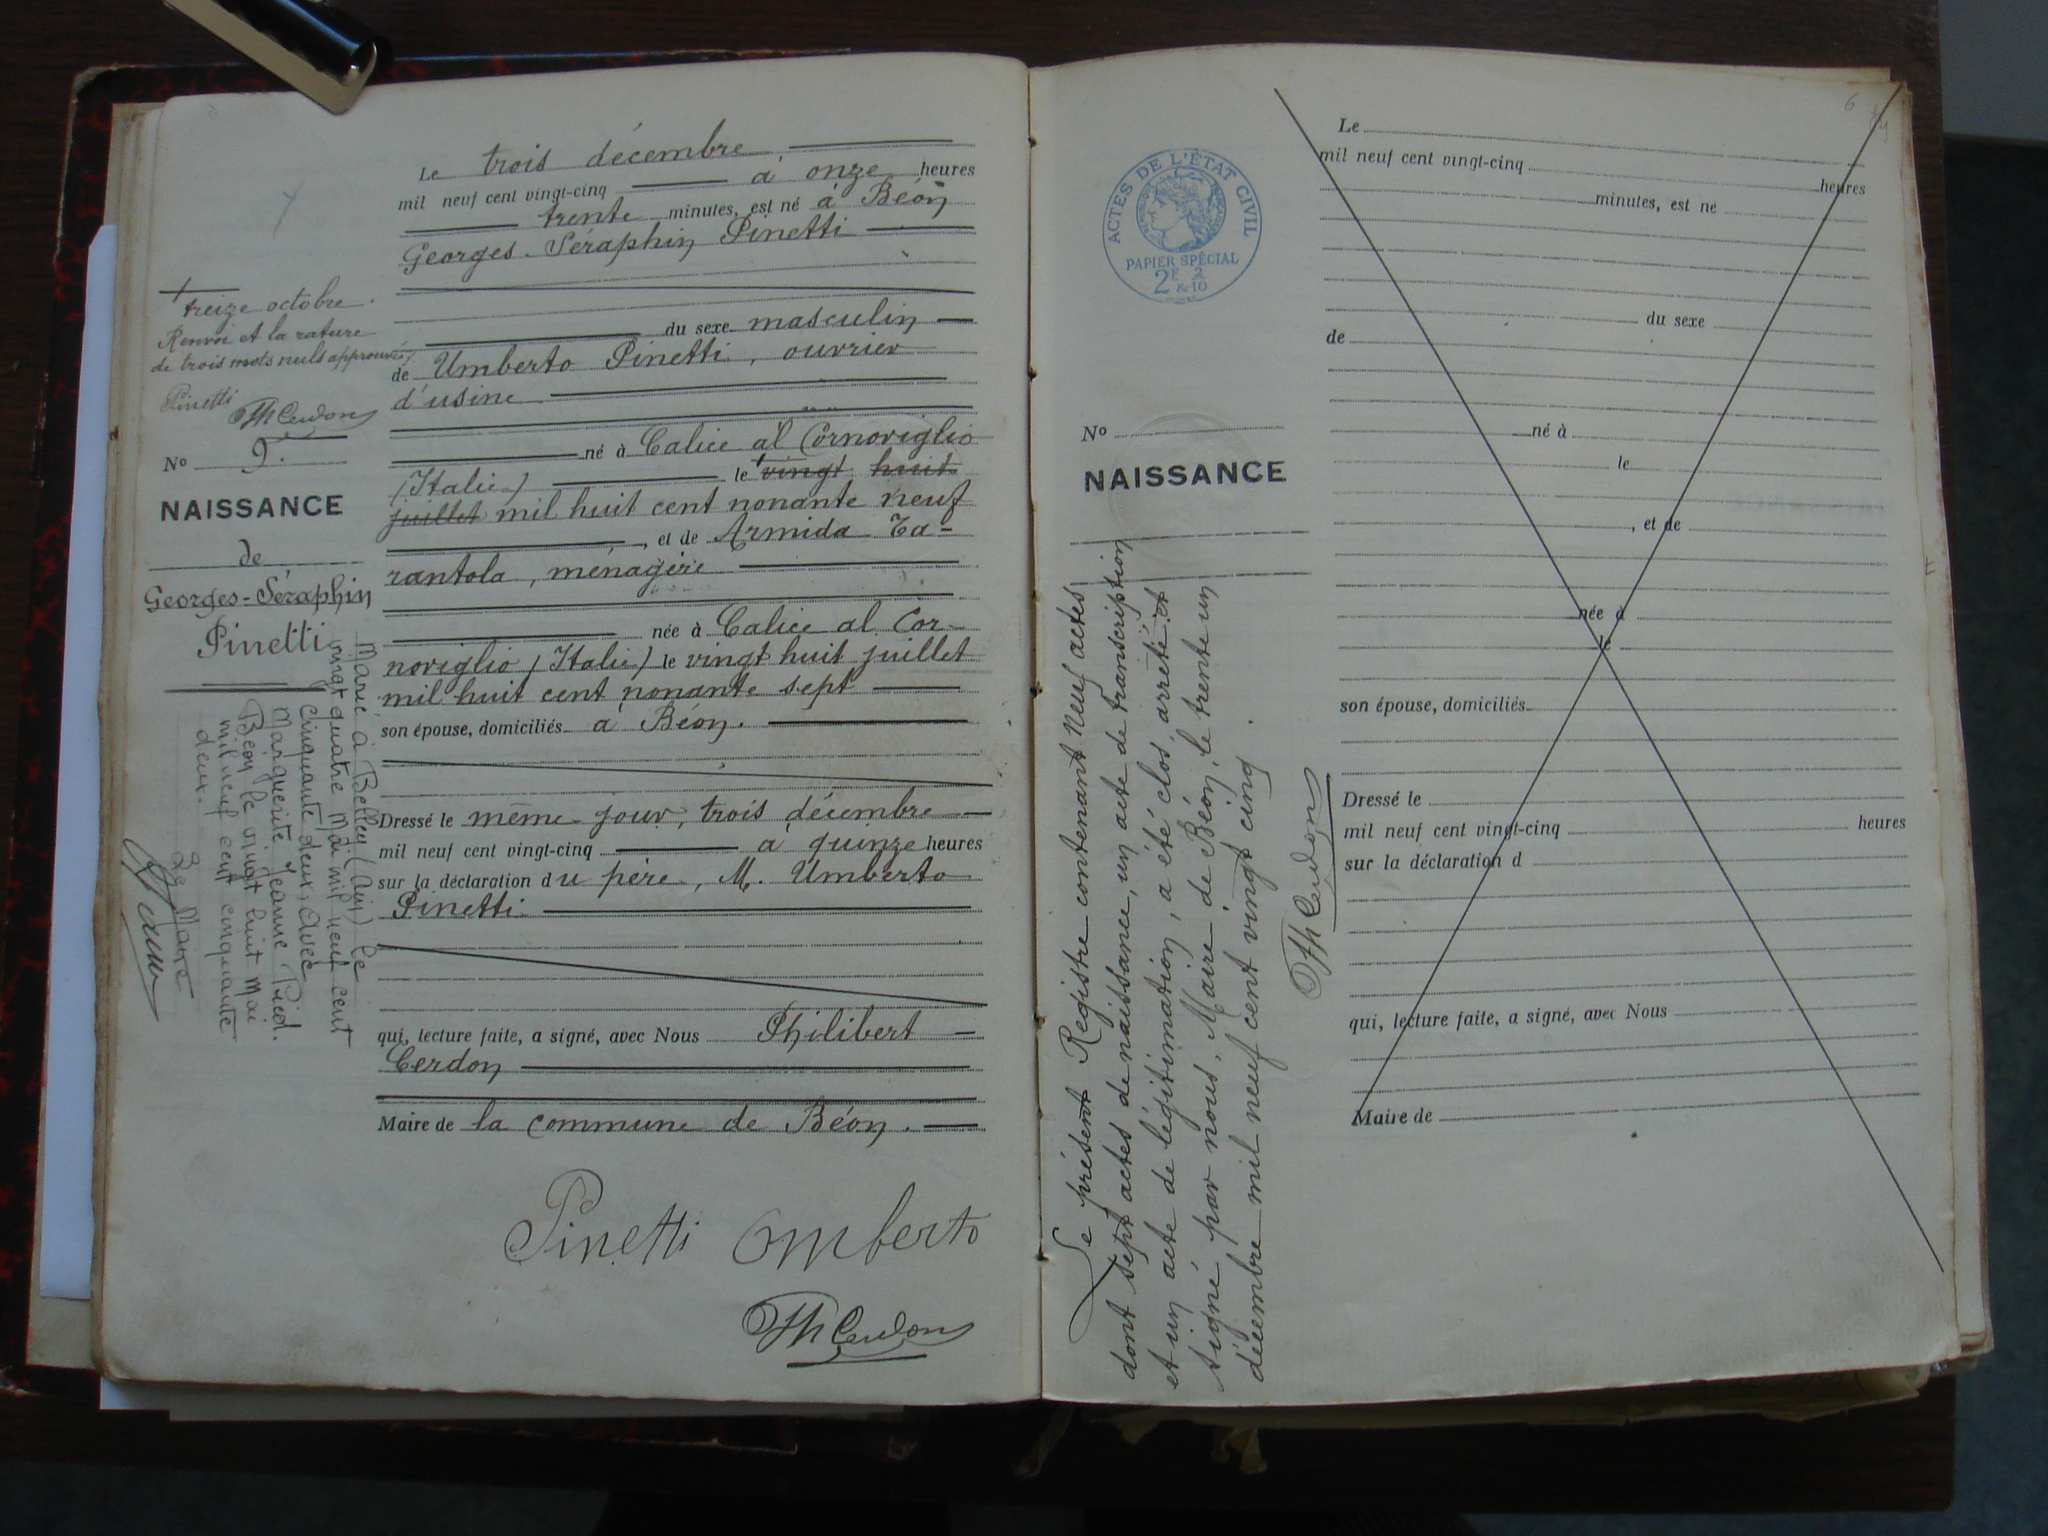 Le trois décembre
mil neuf cent vingt-cinq à onze heures
trente minutes, est né à Béon
Georges-Séraphin Pinetti
du sexe masculin
de Umberto Pinetti, ouvrier
d'usine
né à Calice al Cornoviglio
(Italie) le vingt huit
juillet mil huit cent nonante neuf
, et de Armida Ta-
rantola, ménagère
née à Calice al Cor-
noviglio (Italie) le vingt huit juillet
mil huit cent nonante sept
son épouse, domiciliés à Béon.
Dressé le même jour, trois décembre
mil neuf cent vingt-cinq à quinze heures
sur la déclaration du père, M. Umberto
Pinetti
qui, lecture faite, a signé, avec Nous Philibert
Cerdon
Maire de la commune de Béon.
Pinetti Omberto
Ph Cerdon
treize octobre.
Renvoi et la rature
de trois mots nuls approuvés.
Pinetti
Ph Cerdon
No 9.
NAISSANCE
de
Georges-Séraphin
Pinetti
Marié à Belley (Ain) le
vingt quatre Mai mil neuf cent
cinquante deux, avec
Marguerite Jeanne
Béon le vingt huit Mai
mil neuf cent cinquante
deux.
Le Maire
ACTES DE L'ÉTAT CIVIL
PAPIER SPÉCIAL
2F & 2/10
No
NAISSANCE
Le présent Registre contenant neuf actes
dont sept actes de naissance, un acte de transcription
et un acte de légitimation, a été clos, arrêté et
signé par nous, Maire de Béon, le trente un
décembre mil neuf cent vingt cinq.
Ph Cerdon
6
Le
mil neuf cent vingt-cinq
heures
minutes, est né
du sexe
de
né à
le
, et de
née à
le
son épouse, domiciliés
Dressé le
mil neuf cent vingt-cinq heures
sur la déclaration d
qui, lecture faite, a signé, avec Nous
Maire de